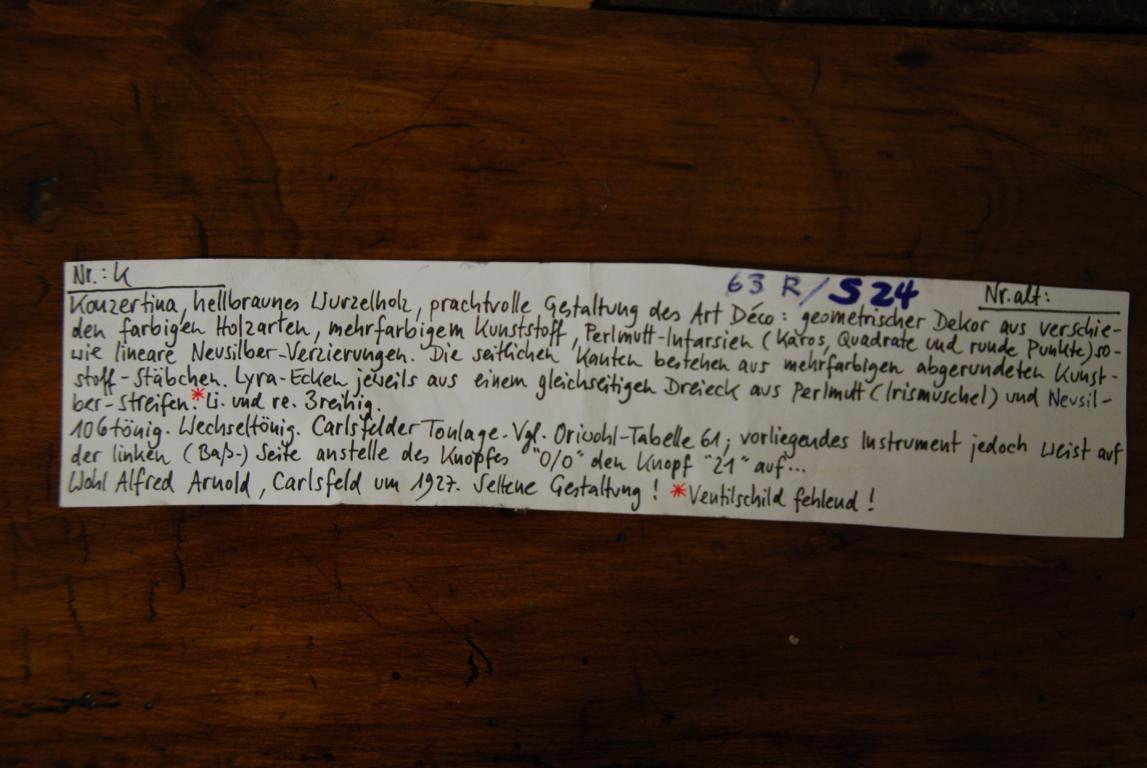 Nr.: K 63 R/S24 Nr. alt:
Konzertina, hellbraunes Wurzelholz, prachtvolle Gestaltung des Art Déco: geometrischer Dekor aus verschie-
den farbigen Holzarten, mehrfarbigem Kunststoff, Perlmutt-Intarsien (Karos, Quadrate und runde Punkte) so-
wie lineare Neusilber-Verzierungen. Die seitlichen Kanten bestehen aus mehrfarbigen abgerundeten Kunst-
stoff-Stäbchen. Lyra-Ecken jeweils aus einem gleichseitigen Dreieck aus Perlmutt (Irismuschel) und Neusil-
ber-Streifen.* Li. und re. 3reihig.
106tönig. Wechseltönig. Carlsfelder Tonlage. Vgl. Oriwohl-Tabelle 61; vorliegendes Instrument jedoch weist auf
der linken (Baß-) Seite anstelle des Knopfes "0/0" den Knopf "21" auf...
Wohl Alfred Arnold, Carlsfeld um 1927. Seltene Gestaltung! *Ventilschild fehlend!